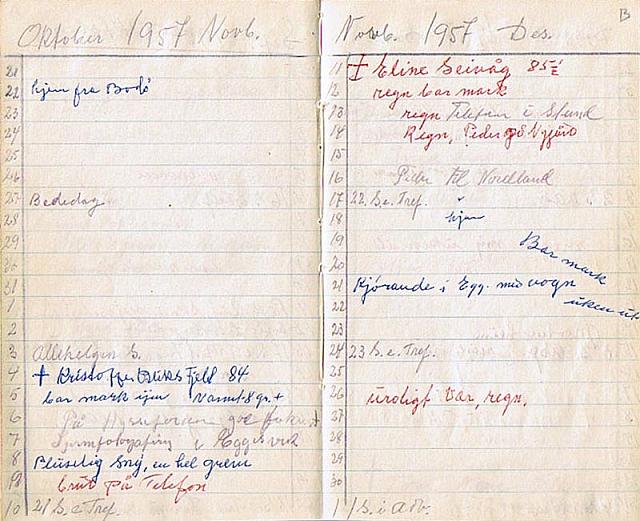 Oktober 1957 Novb.
21
22 kjem fra Bodø
23
24
25
26
27 Bededag
28
29
30
31
1
2
3 Allehelgen S.
4 † Kristoffer Fjeld 84
5 bar mark igen Varmt 8 gr. +
6 På
7 i Eggesvik
8 Pluselig Sny, en hel
9 brut på Telefon
10 21 S. e Tref.
B
Novb. 1957 Des.
11 † Eline Seivåg 85½
12 regn bar mark
13 regn Telefon i Stund
14 Regn, Peder på
15
16 Peder til Nordland
17 22 S. e. Tref.
18 hjem
19 Bar mark
20
21 Kjørande i Egg. med vogn
22 uken ut
23
24 23 S. e. Tref.
25
26 uroligt Vær, regn.
27
28
29
30
1 1 S. i Adv.